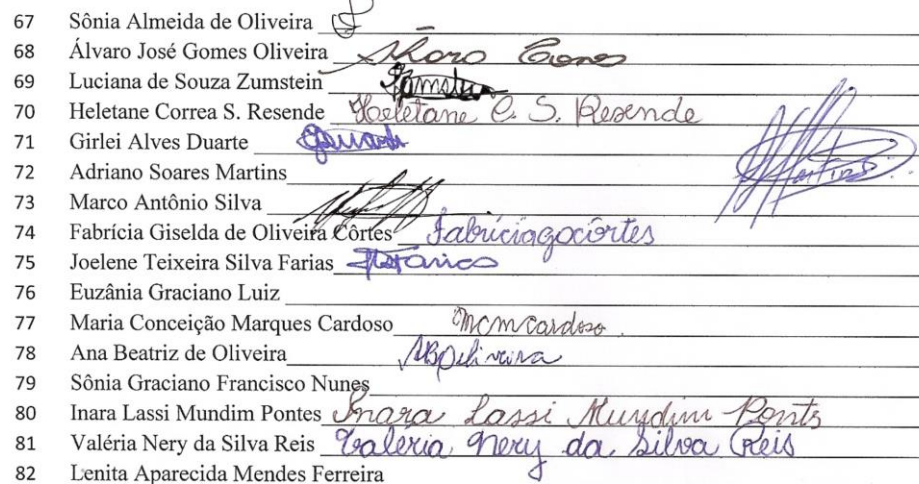 67 Sônia Almeida de Oliveira
68 Álvaro José Gomes Oliveira Alvaro Gomes
69 Luciana de Souza Zumstein
70 Heletane Correa S. Resende Heletane C. S. Resende
71 Girlei Alves Duarte
72 Adriano Soares Martins Martins
73 Marco Antônio Silva
74 Fabrícia Giselda de Oliveira Côrtes fabríciagocôrtes
75 Joelene Teixeira Silva Farias
76 Euzânia Graciano Luiz
77 Maria Conceição Marques Cardoso mcmcardoso
78 Ana Beatriz de Oliveira ABOliveira
79 Sônia Graciano Francisco Nunes
80 Inara Lassi Mundim Pontes Inara Lassi Mundim Pontes
81 Valéria Nery da Silva Reis Valéria Nery da Silva Reis
82 Lenita Aparecida Mendes Ferreira